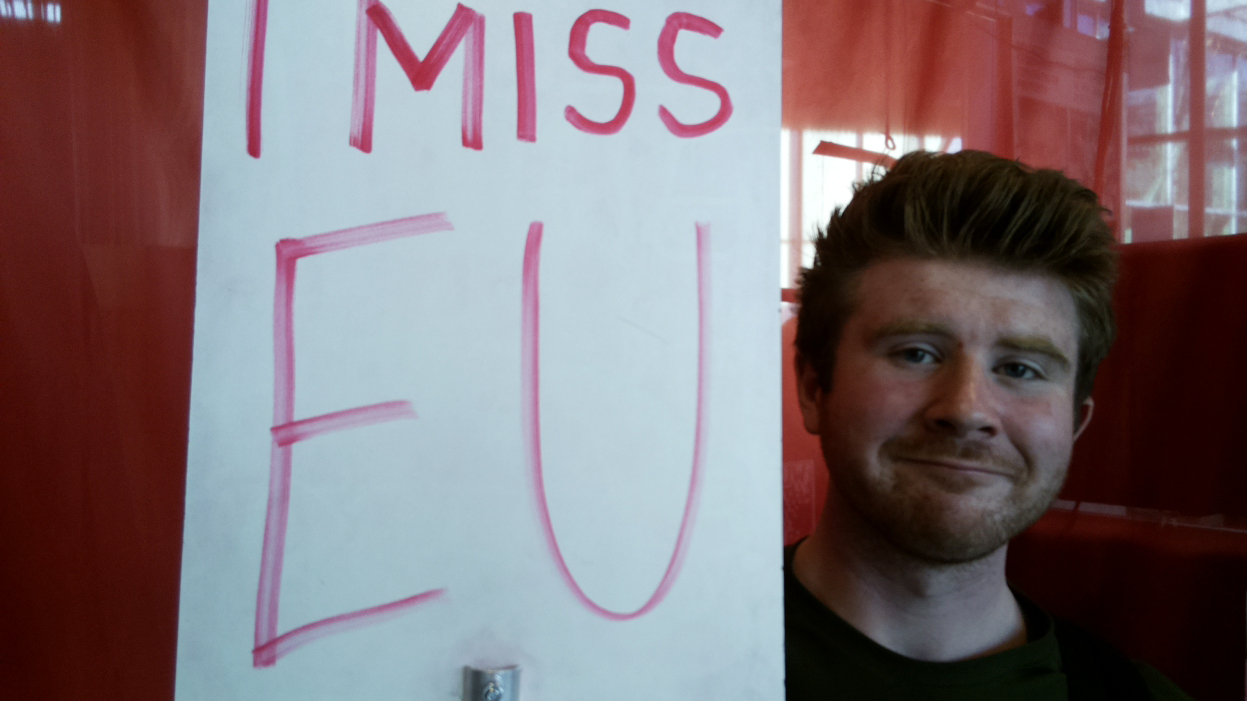 I MISS
EU